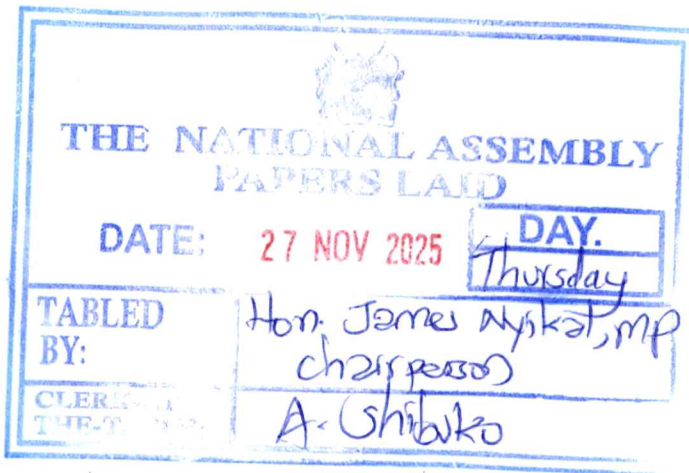 THE NATIONAL ASSEMBLY
PAPERS LAID
DATE: 27 NOV 2025
DAY.
Thursday
TABLED BY:
Hon. James Nyikal, MP
chairperson
CLERK
THE-T
A. Shibuko